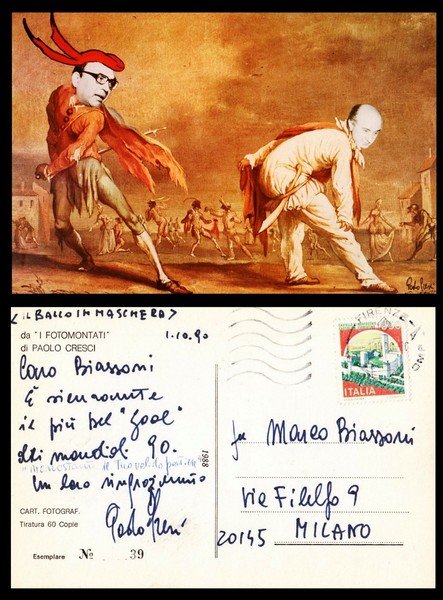 Paolo Cresci
< IL BALLO IN MASCHERA >
da "I FOTOMONTATI"
di PAOLO CRESCI
1.10.90
FIRENZE
Caro Biassoni
È sicuramente
il più bel "goal"
dei mondiali 90.
Un caro ringraziamento
Paolo Cresci
1988
CART. FOTOGRAF.
Tiratura 60 Copie
Esemplare No 39
ITALIA
Marco Biassoni
Via Filelfo 9
20145 MILANO